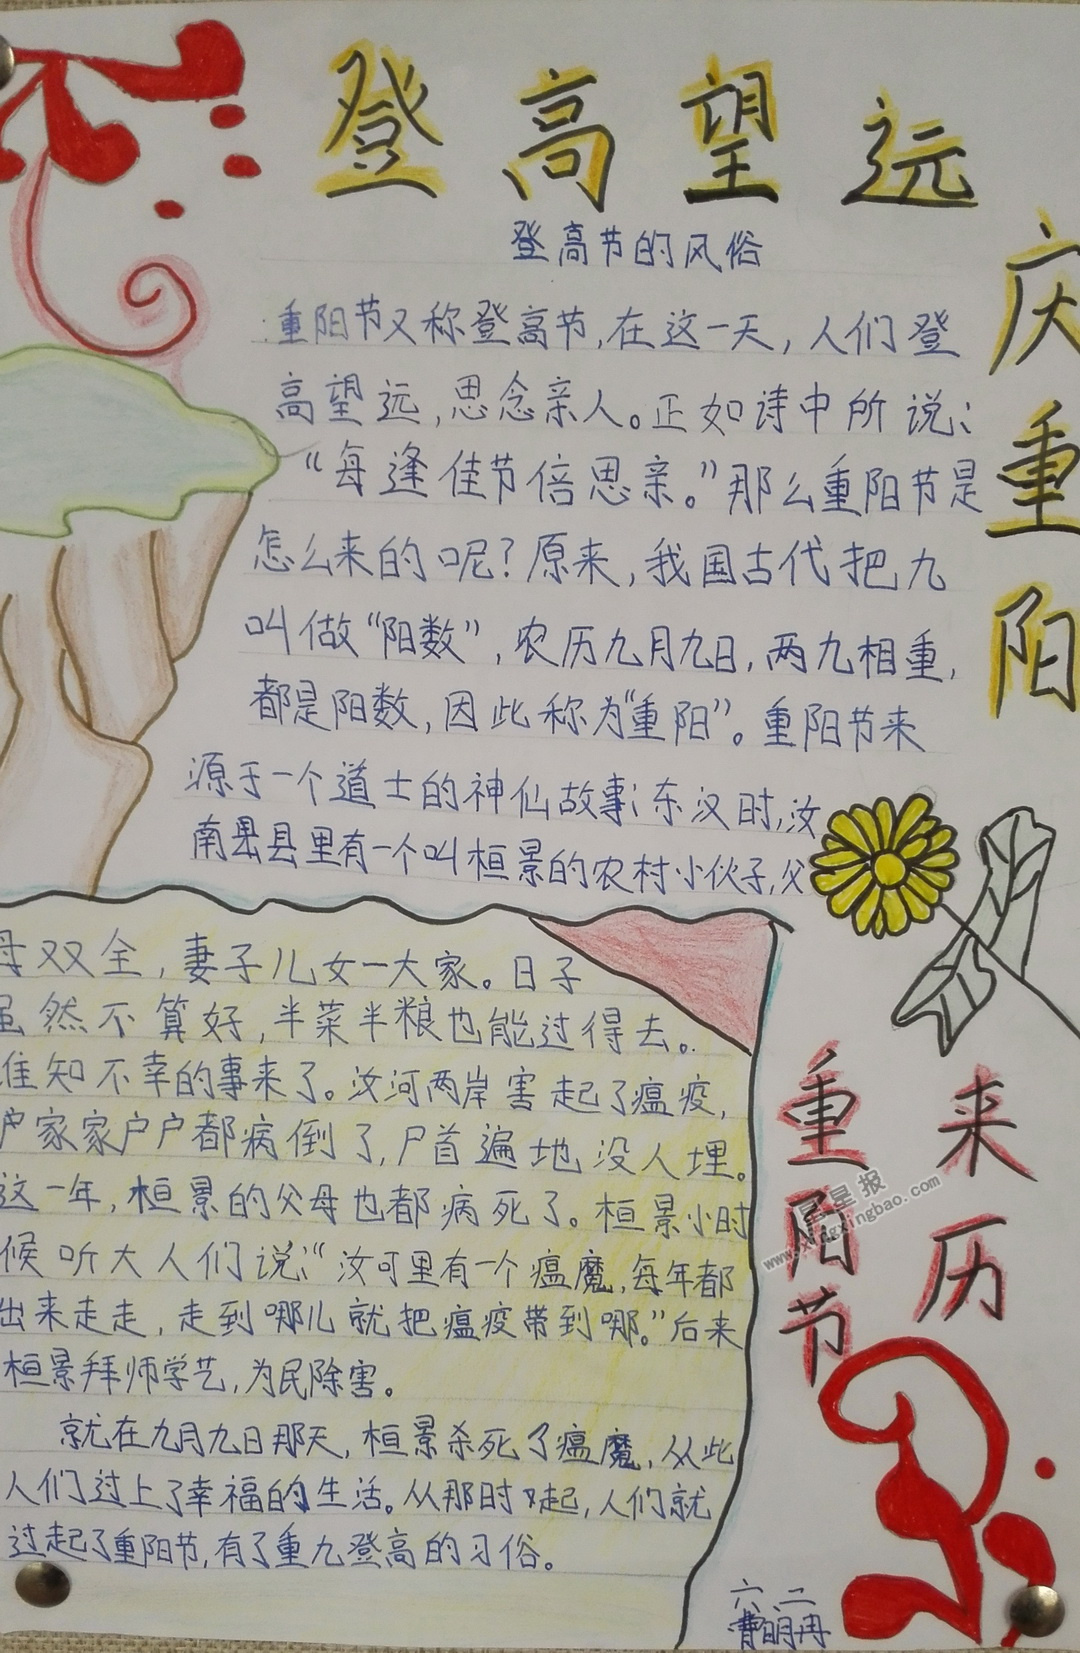 登高望远
庆重阳
登高节的风俗
重阳节又称登高节,在这一天,人们登
高望远,思念亲人。正如诗中所说:
“每逢佳节倍思亲。”那么重阳节是
怎么来的呢?原来,我国古代把九
叫做“阳数”,农历九月九日,两九相重,
都是阳数,因此称为“重阳”。重阳节来
源于一个道士的神仙故事:东汉时,汝
县里有一个叫桓景的农村小伙子,父
母双全,妻子儿女一大家。日子
虽然不算好,半菜半粮也能过得去。
谁知不幸的事来了。汝河两岸害起了瘟疫,
家家户户都病倒了,尸首遍地没人埋。
这一年,桓景的父母也都病死了。桓景小时
候听大人们说:“汝河里有一个瘟魔,每年都
出来走走,走到哪儿就把瘟疫带到哪。”后来
桓景拜师学艺,为民除害。
就在九月九日那天,桓景杀死了瘟魔,从此
人们过上了幸福的生活。从那时起,人们就
过起了重阳节,有了重九登高的习俗。
重阳节
来历
星星报
www.xingxingbao.com
六.二